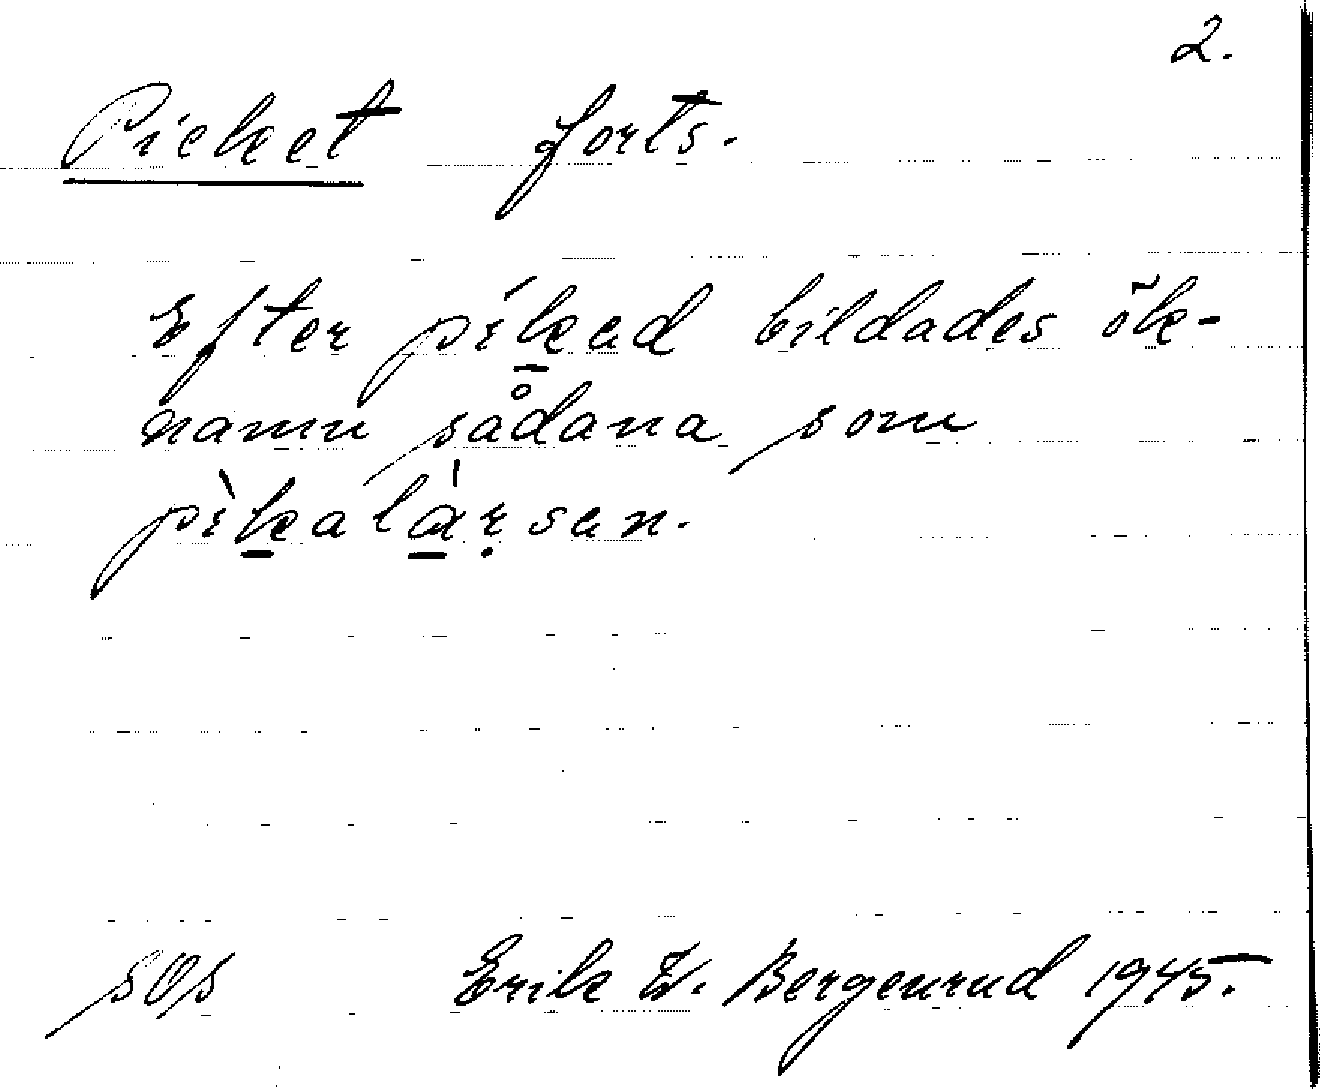 2.
Picket forts.
Efter píḵad bildades ök-
namn sådana som
pìḵalà̱ṛsan.
sOs Erik W. Bergenrud 1945.